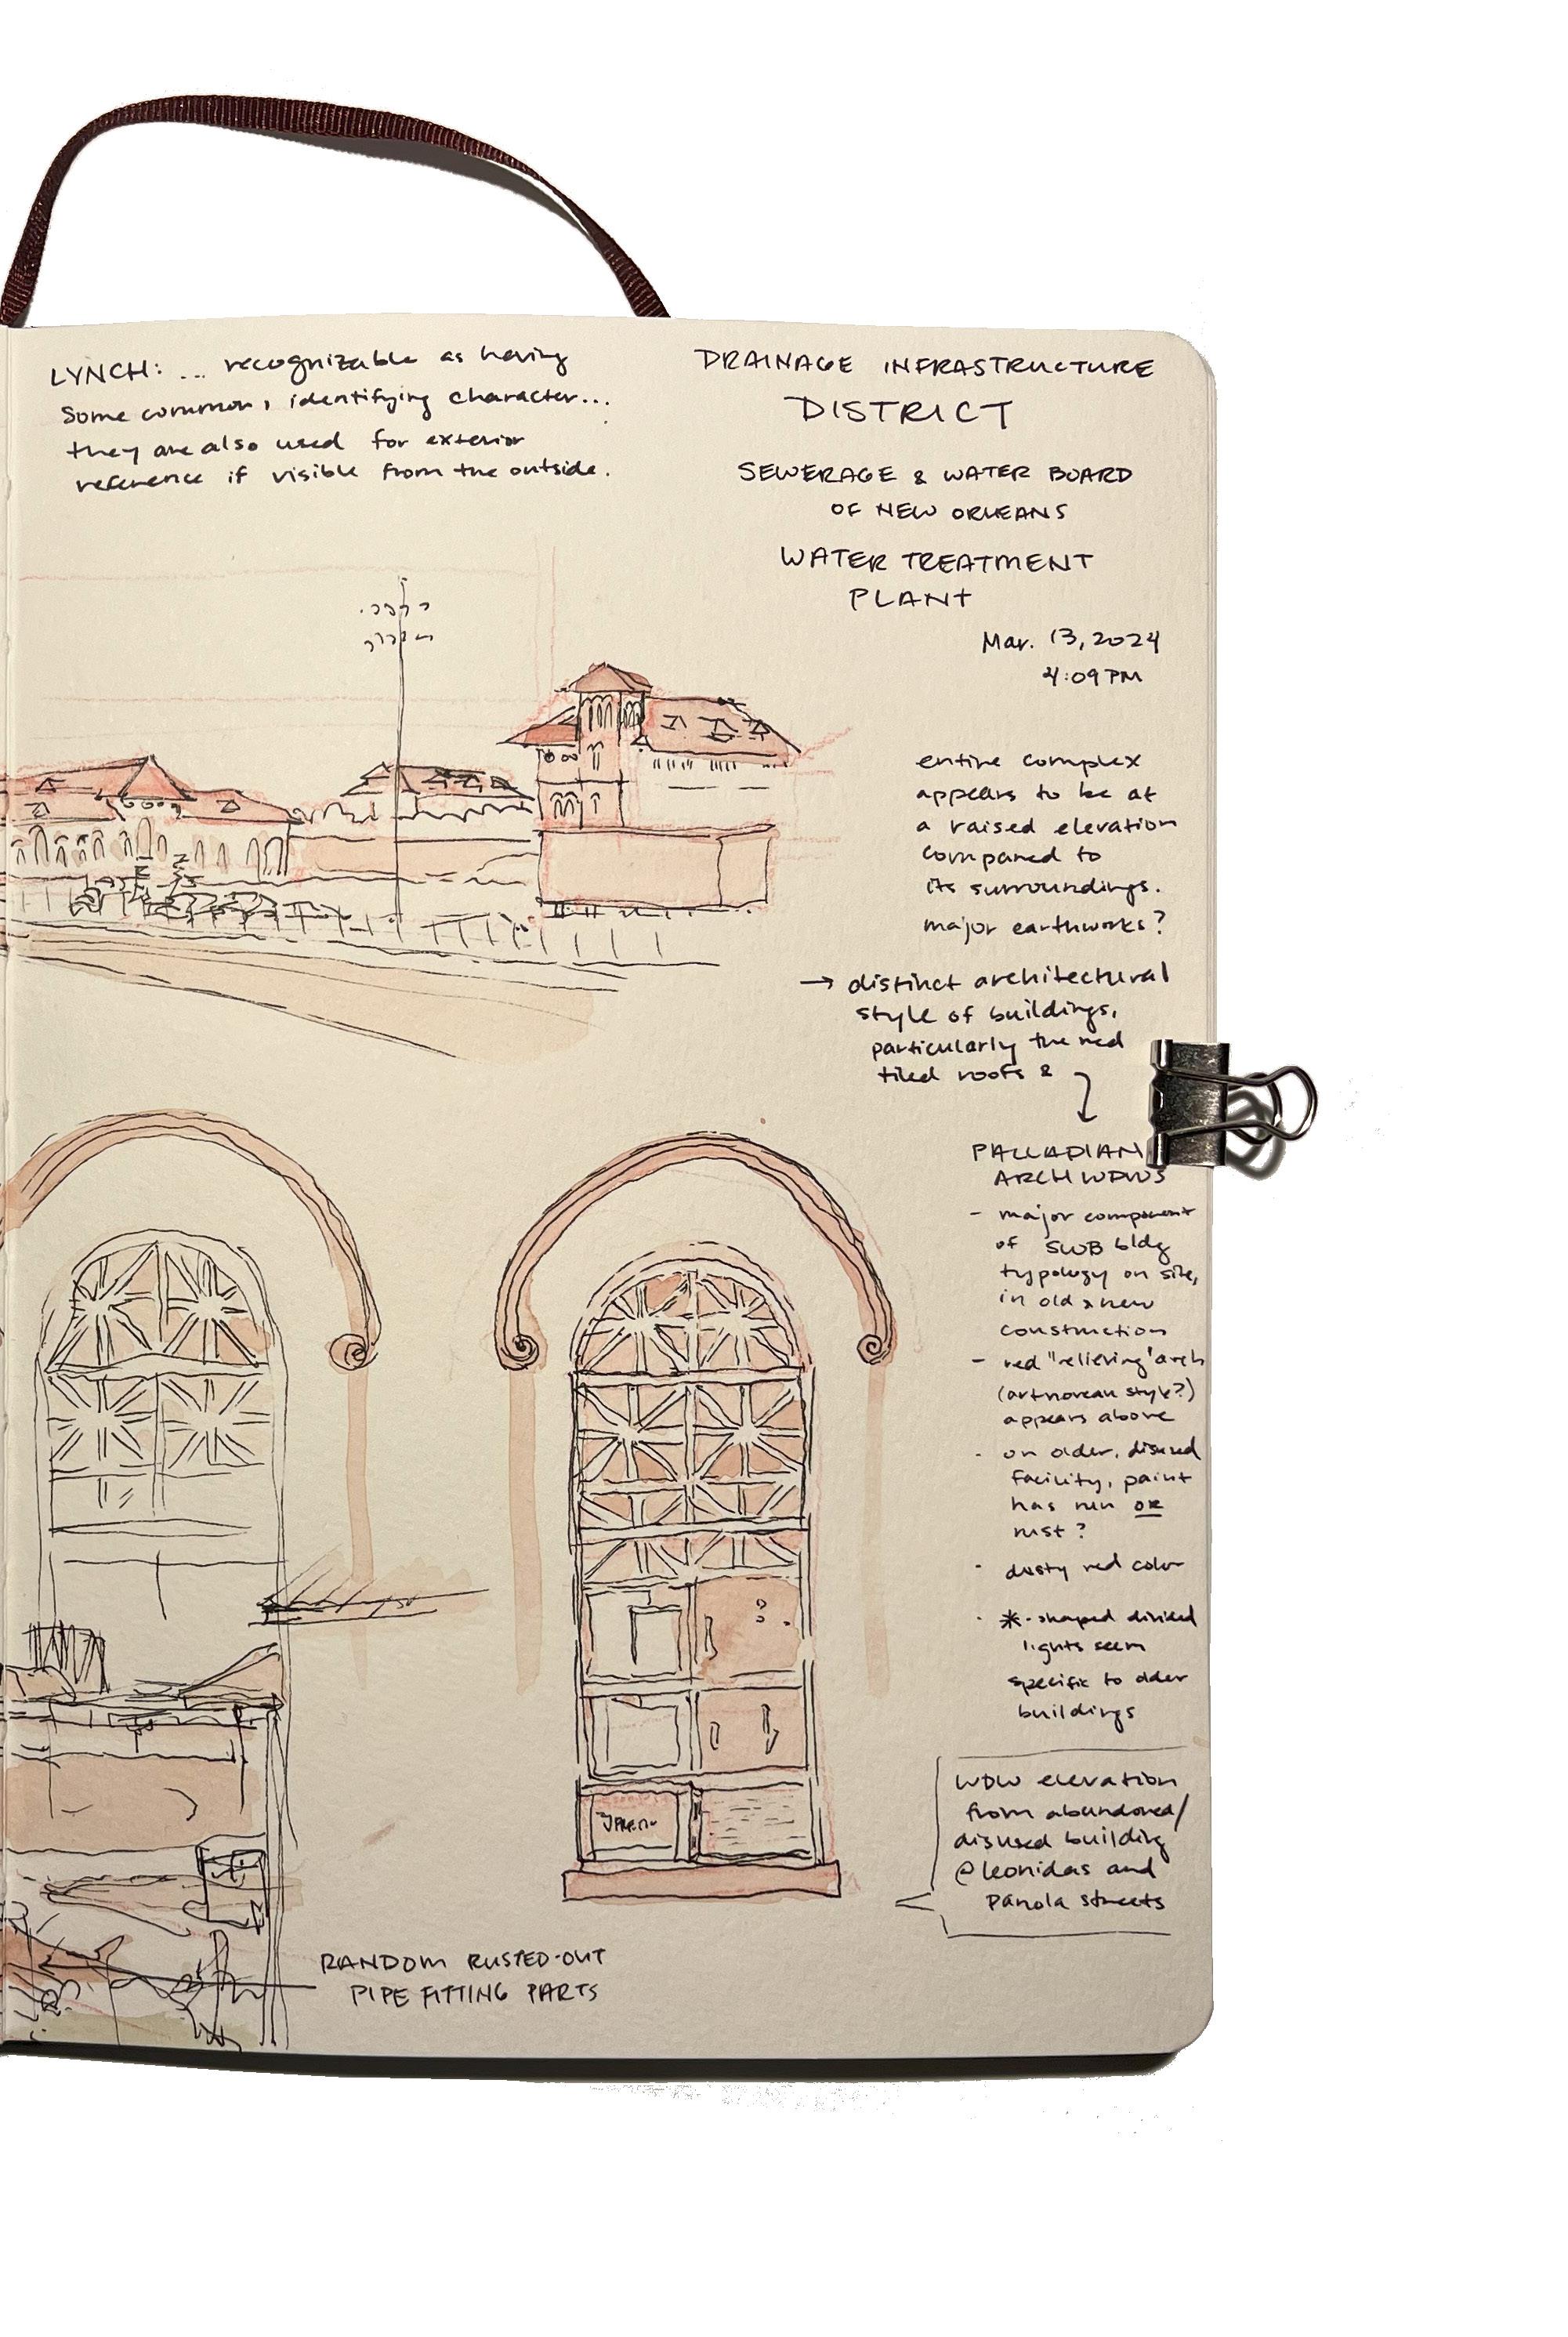 LYNCH: ... recognizable as having
some common, identifying character...
they are also used for exterior
reference if visible from the outside.
DRAINAGE INFRASTRUCTURE
DISTRICT
SEWERAGE & WATER BOARD
OF NEW ORLEANS
WATER TREATMENT
PLANT
Mar. 13, 2024
4:09 PM
entire complex
appears to be at
a raised elevation
compared to
its surroundings.
major earthworks?
→ distinct architectural
style of buildings,
particularly the red
tiled roofs &
PALLADIAN
ARCH WDWS
- major component
of SWB bldg
typology on site,
in old & new
construction
- red "relieving" arch
(art noveau style?)
appears above
- on older, disused
facility, paint
has run OR
rust?
- dusty red color
- *-shaped divided
lights seem
specific to older
buildings
WDW elevation
from abandoned/
disused building
@ leonidas and
panola streets
RANDOM RUSTED-OUT
PIPE FITTING PARTS